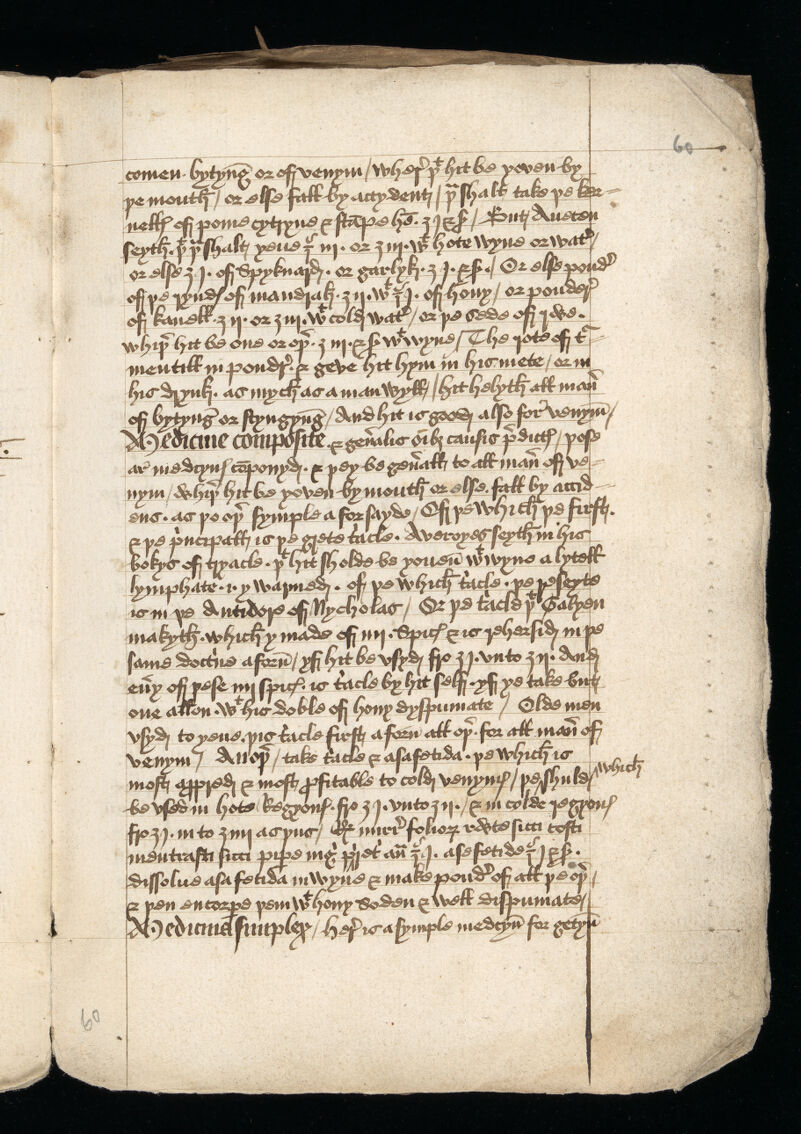 60
comen bytyng or off venym / wheþ̉ þͭ hit be yoven by
þe mouth / or else fall by accydent / þͧ shalt take þe ker-
nell off pome cytryne & stape hē ʒ j & ſ / But Aucten
seyth þͭ þͧ shalt yeue ʒ iij or ʒ iiij wͭ hote wyne or watͬ /
or else ʒ j. off Spyknard. or garlyk. ʒ j. & ſ. / Or else poudͬ
of þe rynd of mandrak. ʒ ij. wͭ ʒ j. of hony / or pouder
of kanell. ʒ ij. or ʒ iij. wͭ cold watͬ / or þe sede off rwe.
whiþ̉ hit be one or oþ̉. ʒ iij. & ſ wͭ wyne / The rote off tͬ-
mentill in poudͬ. & geve hit hym in his mete / or in
his drynk. as mych as a man wyll / hit helyth all man̄
off bytyng or styngyng / And hit is good also for venym /
Medicine composite & gen̄alis oīb causis p̄dict / þese
ar medcyns cōponyd. & þey be gen̄all to all man̄ off ve-
nym / whiþ̉ hit be yoven by mouth or else fall by accid-
ens. as þe oþ̉ symple aforsayde / Off þe which þe first.
& þe p̉ncipall is þe grete t̉acle. Averoyes seyth in his
bokys off tryacle. þͭ hit sholde be youen wͭ wyne a lytell
lymphate .i. y warmed. of þe which t̉acle. þe reseyte
is in þe Antidore off Nycholas / Or þe t̉acle þͭ Galyen
makyth. which y made off iiij. Spic̉ & is rehersid in þe
same doct̉ne aforn / yff hit be vsyd fro ʒ j. vnto ʒ ij. And
eūy off þese iiij spic̉. is t̉acle by hit self. yff ye take but
one allon. wͭ his doble off hony dyspumate / Olde men
vsyd to yeue þis t̉acle first aforn all oþ̉. for all man̄ off
venym / An oþ̉ / take t̉acle & asafetida. þe which is
most appred & most p̄fitable to cold venyms / þe shuld which
be vsed in hote Regyons. fro ʒ j. vnto ʒ ij. / & in colde regyons
fro ʒ j. in to ʒ iiij as þus /
mentrasti sicci pipe nig̉ asefetide ʒ j & ſ.
dissolue asafetida in wyne & make poudͬ of all þe oþ̉ /
& þen encorpe þem wͭ hony soden & well dispumate /
Medicina simplex / Her̉ is a symple medcyn for
60